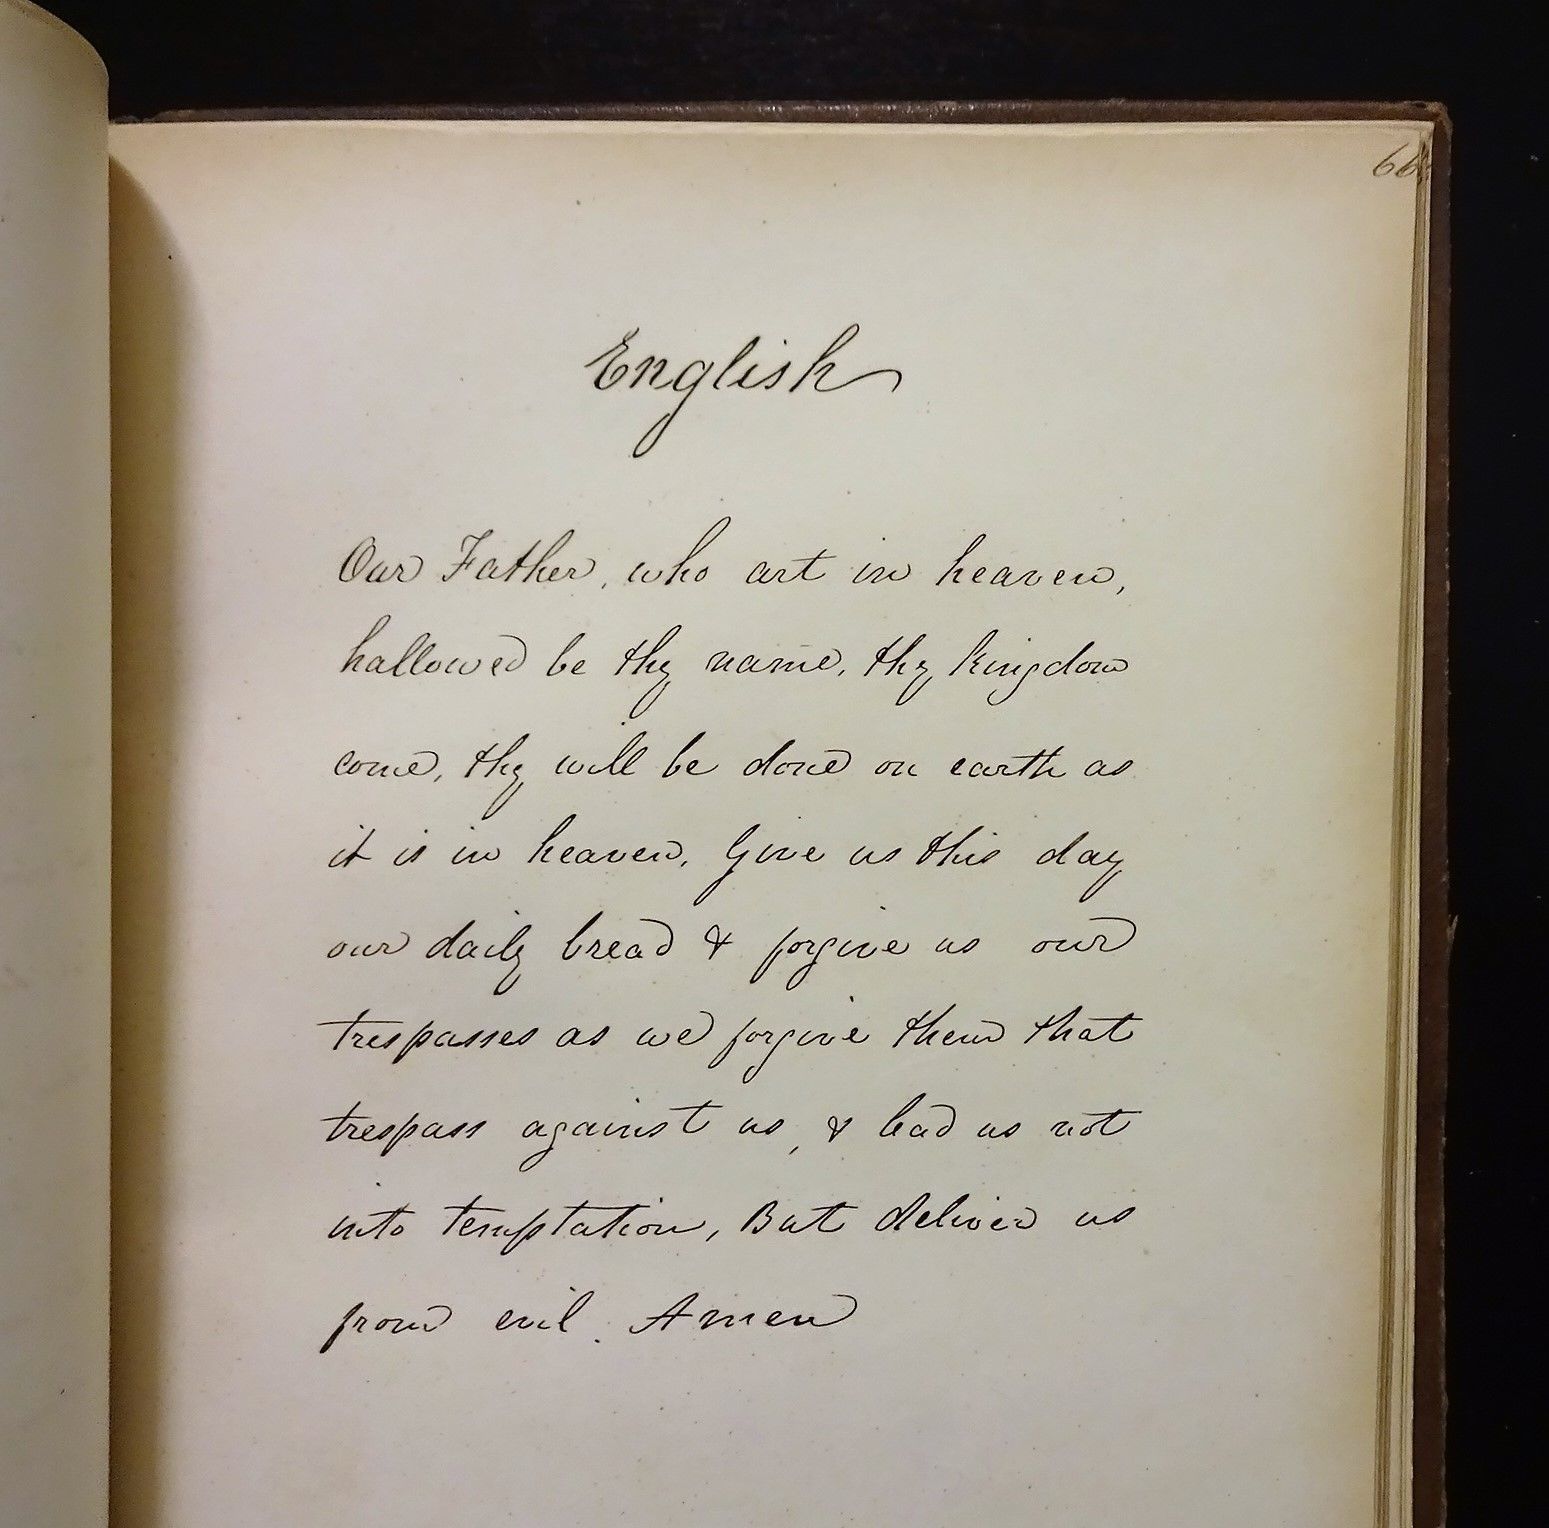 66
English
Our Father, who art in heaven,
hallowed be thy name, thy kingdom
come, thy will be done on earth as
it is in heaven, Give us this day
our daily bread & forgive us our
trespasses as we forgive them that
trespass against us, & lead us not
into temptation, But deliver us
from evil. Amen